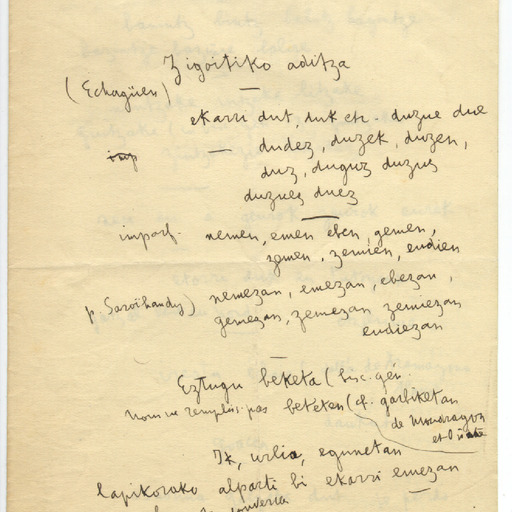 Zigoitiko aditza
(Echagüen)
ekarri dut, duk etc. duzue due
imp — dudez, duzek, duzen,
duz, duguz duzus
duzues duez
imparf. nemen, emen eben, gemen,
zemen, zemien, eudien
p. Saroihandy) nemezan, emezan, ebezan,
gemezan, zemezan zemiezan
eudiezan
Eztugu beketa (bisc. gén.
nous ne remplis. pas beteten (cf. garbiketan
de Mondragon
et Oñate
urlia, egunetan
lapikorako alparti bi ekarri emezan